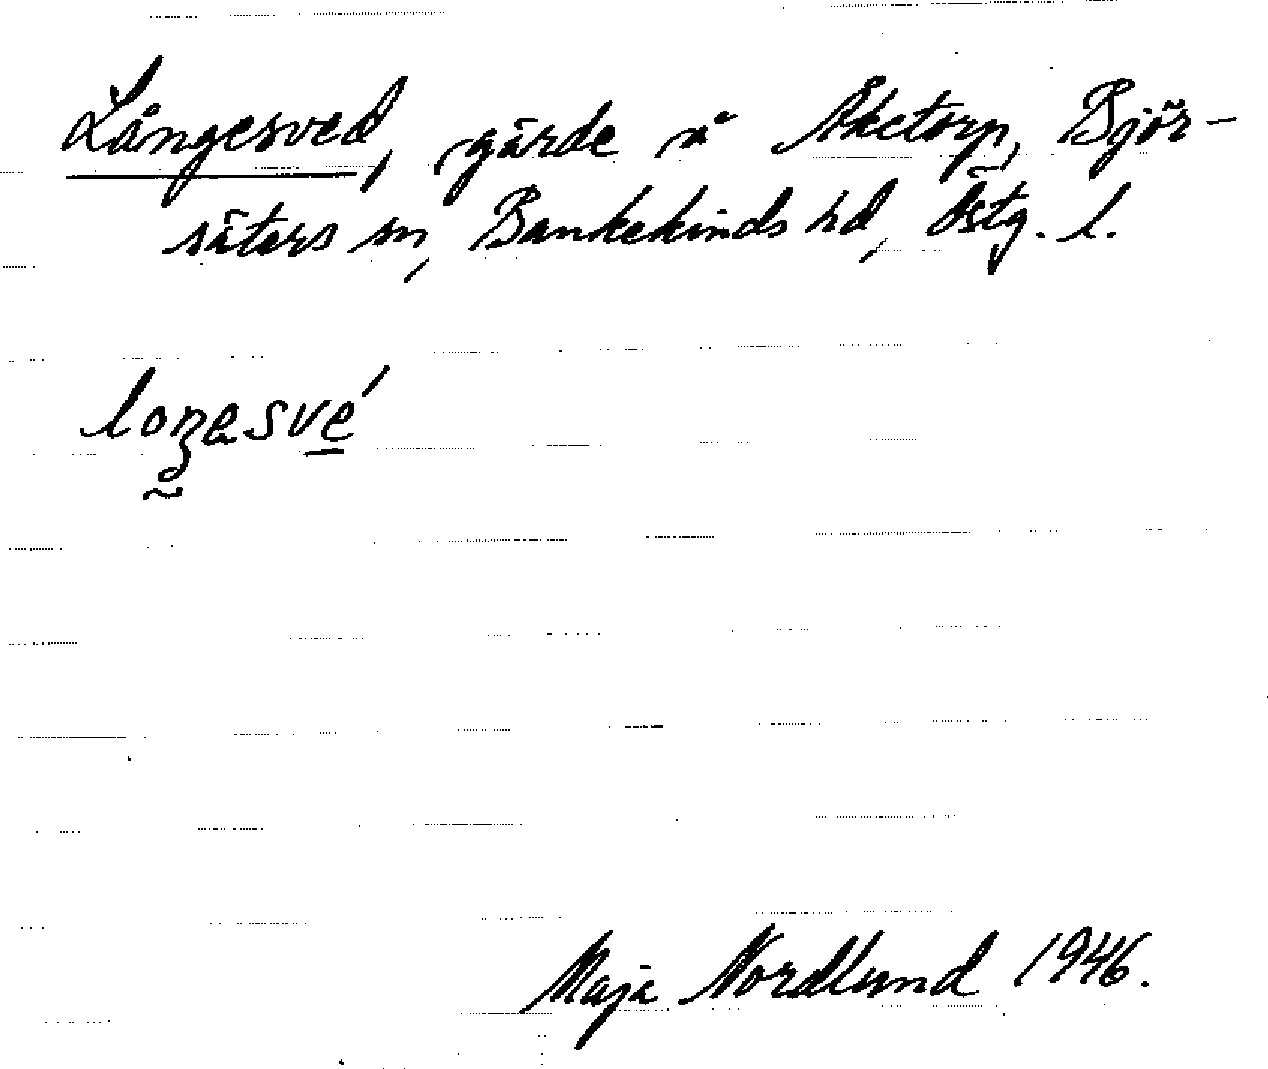 Långesved, gärde å Åketorp, Björ-
säters sn, Bankekinds hd, Östg. l.
loŋesvé
Maja Nordlund 1946.